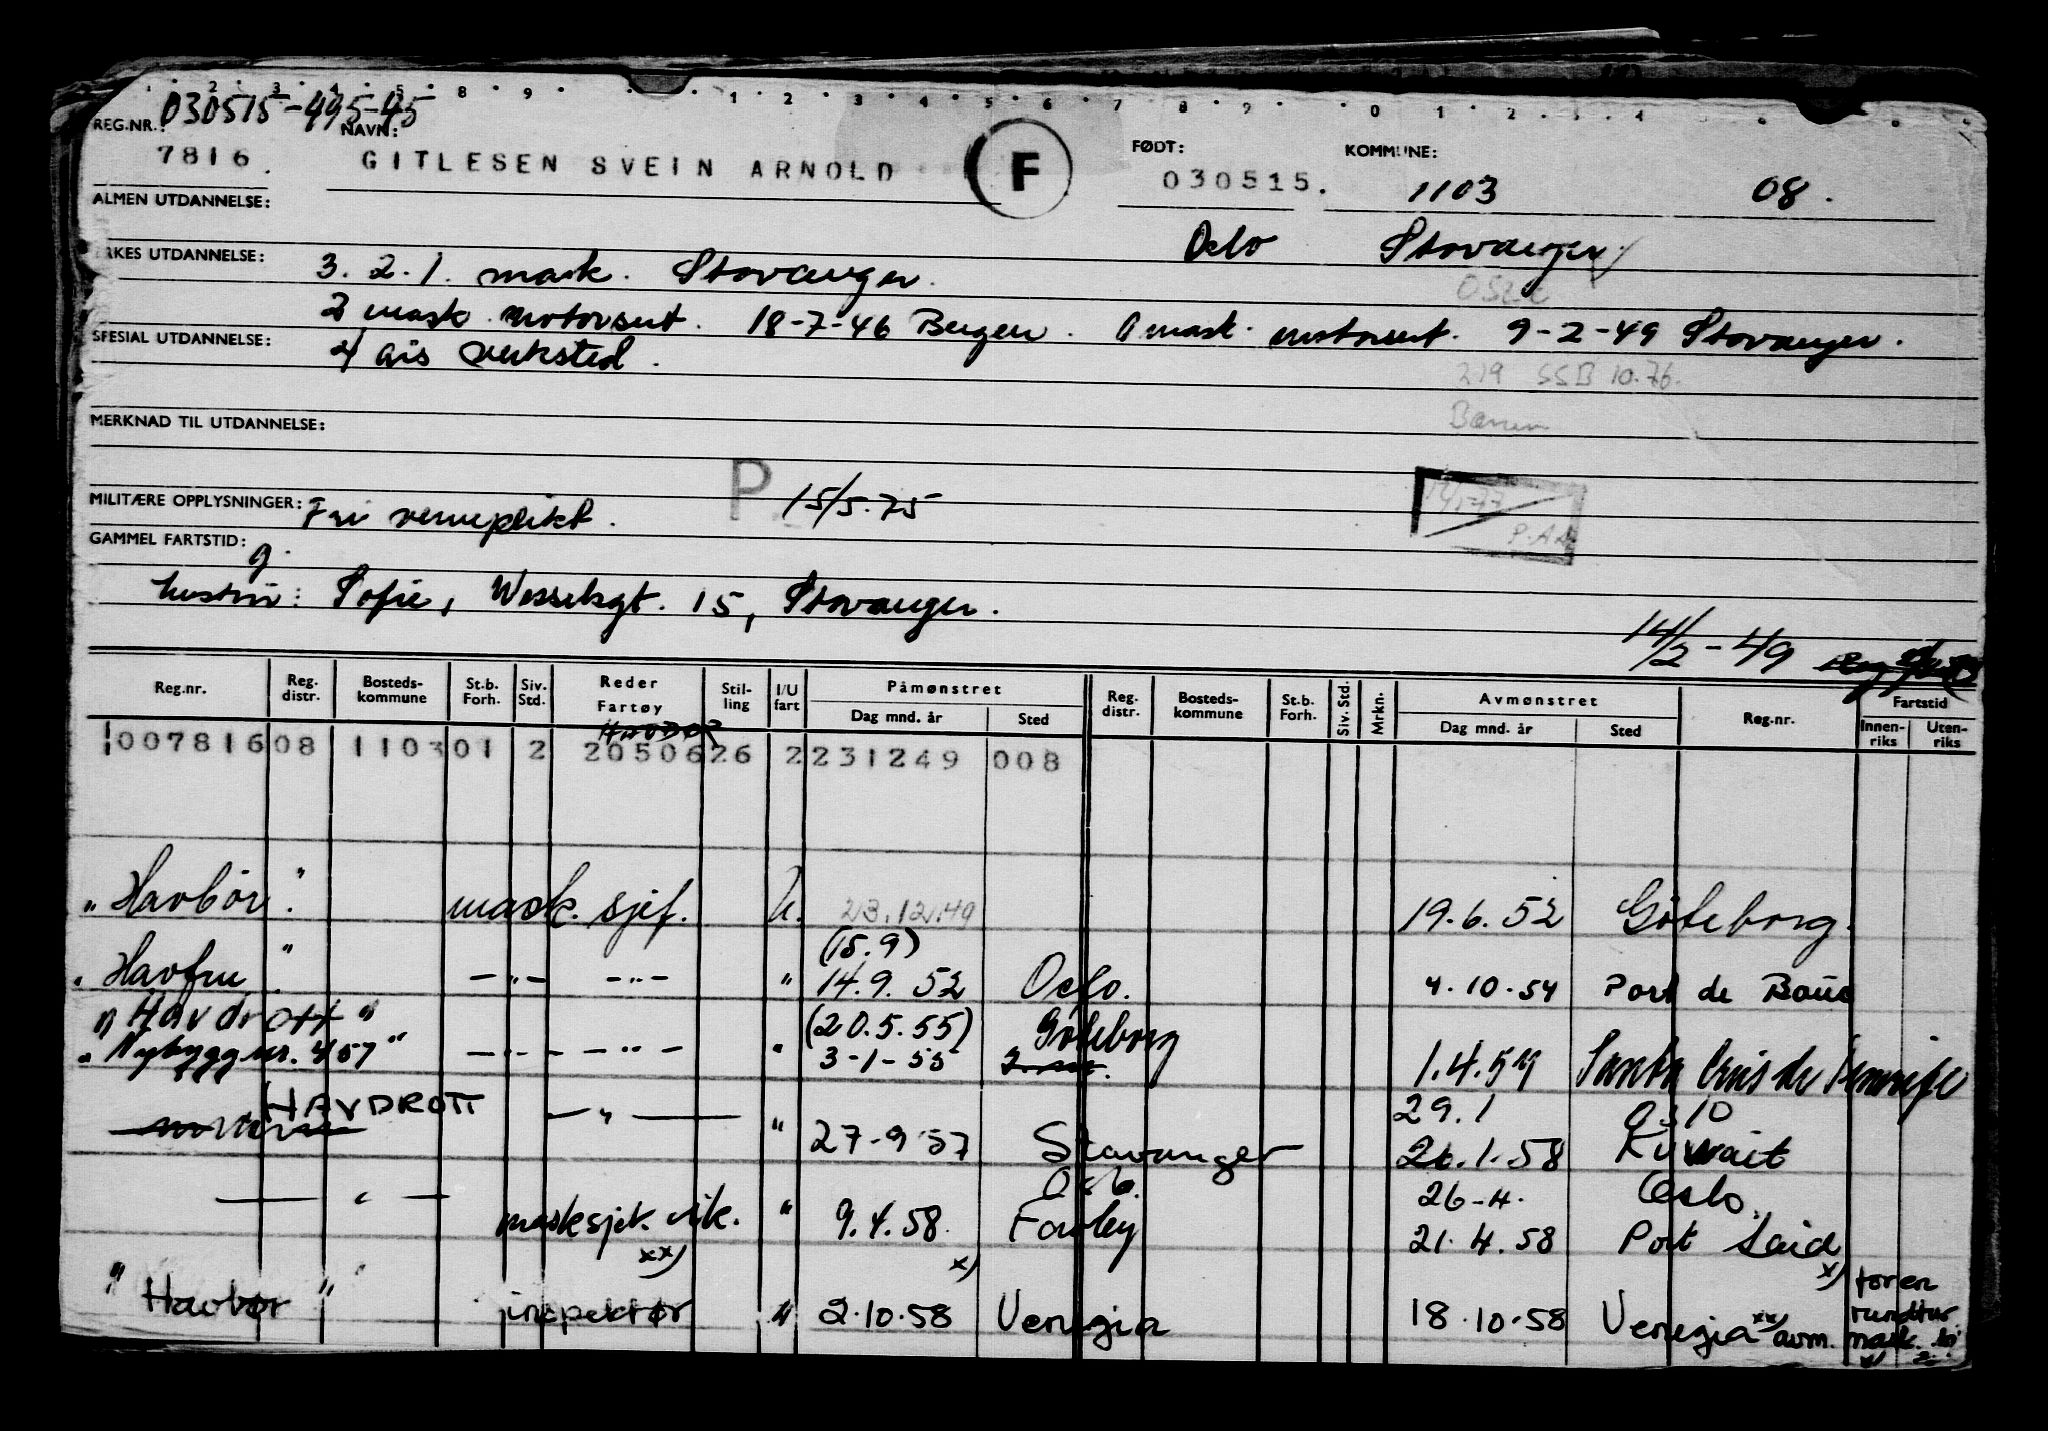 2 3 4 5 8 9 1 2 3 4 5 6 7 8 9 0 1 2 3 4
REG.NR.: 030515-495-45 NAVN: FØDT: KOMMUNE:
7816 GITLESEN SVEIN ARNOLD F 030515. 1103 08.
ALMEN UTDANNELSE: Oslo Stavanger
YRKES UTDANNELSE: 3. 2. 1. mask. Stavanger.
2 mask. motorsert. 18-7-46 Bergen. 1 mask. motorsert. 9-2-49 Stavanger.
SPESIAL UTDANNELSE: 4 års verksted.
219 SSB 10.76.
MERKNAD TIL UTDANNELSE:
MILITÆRE OPPLYSNINGER: Fri verneplikt. P 15/5.75
GAMMEL FARTSTID:
g.
hustru: Sofie, Wesselsgt. 15, Stavanger.
14/2-49
Reg.nr. Reg. distr. Bosteds-kommune St.b. Forh. Siv. Std. Reder Fartøy Stil-ling I/U fart Påmønstret Dag mnd. år Sted Reg. distr. Bosteds-kommune St.b. Forh. Siv. Std. Mrkn. Avmønstret Dag mnd. år Sted Reg.nr. Fartstid Innen-riks Uten-riks
007816 08 1103 01 2 20506 26 2 231249 008
"Havbør" mask. sjef. U. 23.12.49 19.6.52 Göteborg.
(15.9)
"Havfru" -"- -"- " 14.9.52 Oslo. 4.10.54 Port de Bouc
"Havdrott" (20.5.55) Göteborg
"Nybygg nr. 407" -"- -"- " 3-1-55 1.4.57 Santa Cruis de Tenerife
HAVDROTT -"- " 27-9 57 Stavanger 29.1 Oslo
26.1.58 Kuwait
Oslo. 26-4. Oslo.
-"- masksjef. vik. " 9.4.58. Fawley 21.4.58 Port Said
xx) x) x) for en
"Havbør" inspektør " 2.10.58 Venezia 18.10.58 Venezia xx) avm. rundtur
mask.